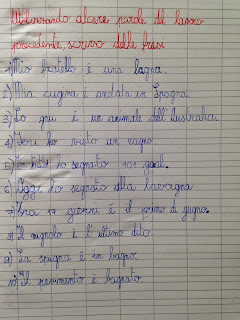 Utilizzando alcune parole del lavoro
precedente, scrivo delle frasi
1) Mio fratello è una lagna.
2) Mia cugina è andata in Spagna.
3) La gru è un animale dell'Australia.
4) Ieri ho visto un ragno.
5) In tutto ho segnato 101 goal.
6) Oggi ho segnato alla lavagna
7) Tra 17 giorni è il primo di giugno.
8) Il mignolo è l'ultimo dito.
9) La spugna è in bagno.
10) Il pavimento è bagnato.